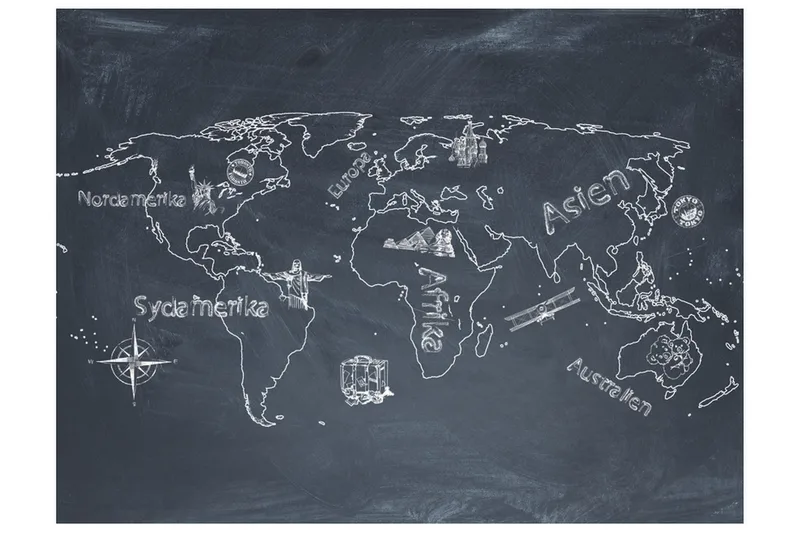 Nordamerika
Europe
Asien
TOKYO
TOKYO
Afrika
Sydamerika
Australien